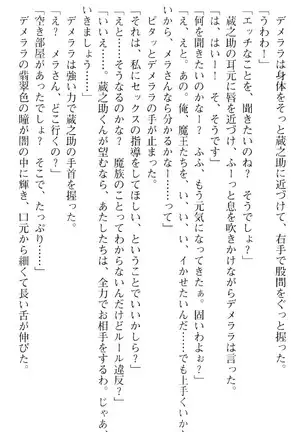 デメララは身体をそっと蔵之助に近づけて、右手で股間をぐっと握った。
「うわわ！」
「エッチなことを、聞きたいのね？　そうでしょ？」
蔵之助の耳元に唇を近づけ、ふーっと息を吹きかけながらデメララは言った。
「は、はい！　そ、そうです」
「何を聞きたいのかなー？　ふふ、もう元気になってきたぁ。固いわよぉ？」
俺、魔王たちを、い、い、いイかせ でも上手くいか
メラさんなら分かるかなーって……」
ピタッとデメララの手が止まった。
「それは、私にセックスの指導をしてほしい、ということでいいかしら？」
「え？　……そうなるのかな？　魔族のことってわからないんだけどルール違反？」
「いいえ……。蔵之助くんが望むなら、あたしたちは、全力でお相手をするわ。じゃあ、
きましょう……」
デメララは強い力で蔵之助の手首を握った。
「え？　メラさん、どこ行くの？」
「空き部屋があったでしょ？　そこで、たっぷり……」
デメララの翡翠色の瞳が闇の中に輝き、口元から細くて長い舌が伸びた。